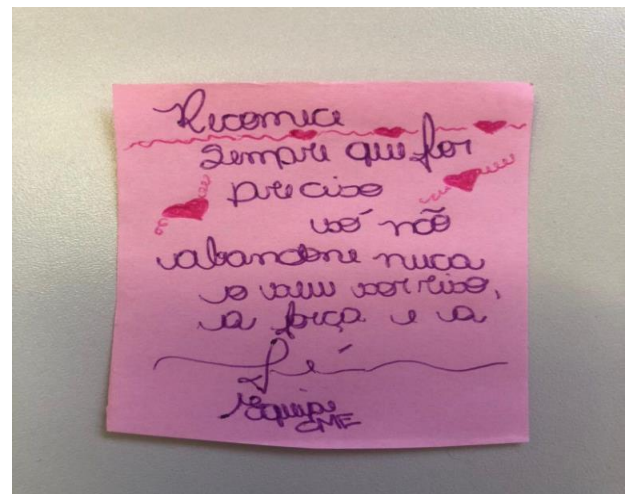 Recomece
sempre que for
preciso
só não
abandone nuca
o seu sorriso,
a força e a
Fé
Equipe
CME